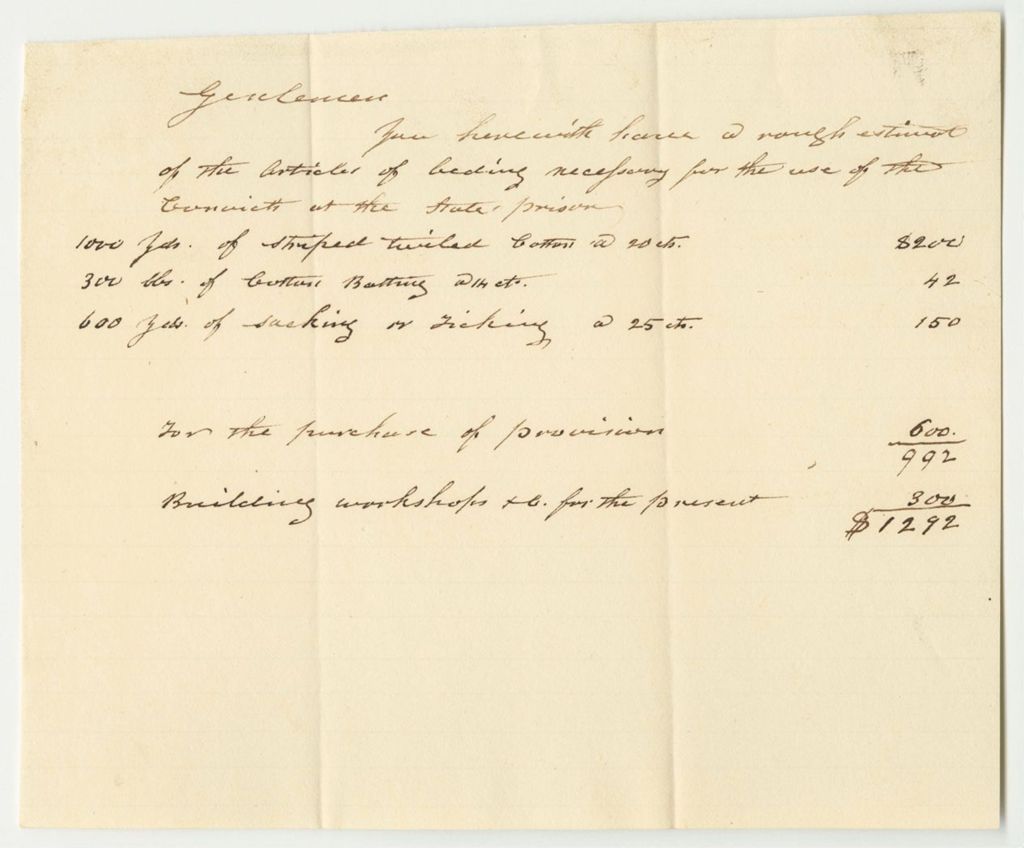 Gentlemen
You herewith have a rough estimat
of the Articles of beding necessary for the use of the
Convicts at the State prison
1000 Yds. of striped twiled Cotton @ 20 cts. $200
300 lbs. of Cotton Batting @ 14 cts. 42
600 Yds. of sacking or Ticking @ 25 cts. 150
For the purchase of provision 600.
992
Building workshops &C. for the present 300
$1292